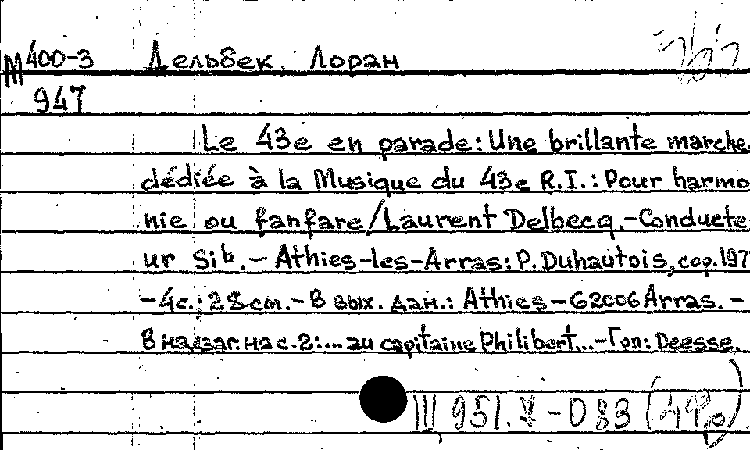 М 400-3 Дельбек, Лоран
947
Le 43e en parade: Une brillante marche
dédiée à la Musique du 43e R.I.: Pour harmo
nie ou fanfare/Laurent Delbecq.-Conducte
ur Sib.- Athies-les-Arras: P. Duhautois, cop. 197
- 4c.; 28cm.- В вых. дан.: Athies-62006 Arras. -
В надзаг. на с. 2:... au capitaine Philibert...-Гоп: Deesse.
Ш 951. -D83